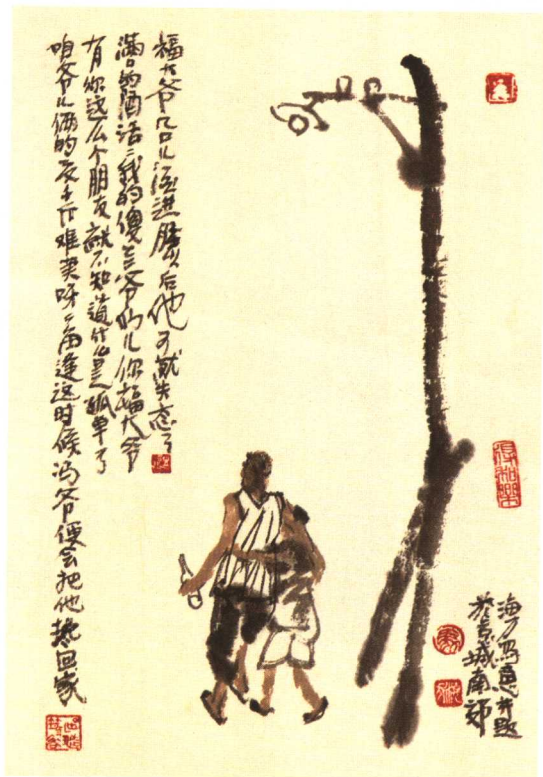 福大爷几口儿酒进膛后他可就失态了
满口的酒话我的傻爷们儿你福大爷
有你这么个朋友就不知道什么是孤单了
咱爷儿俩的千斤难买呀每逢这时候冯爷便会把他搀回家
海写意并题
於城南郊